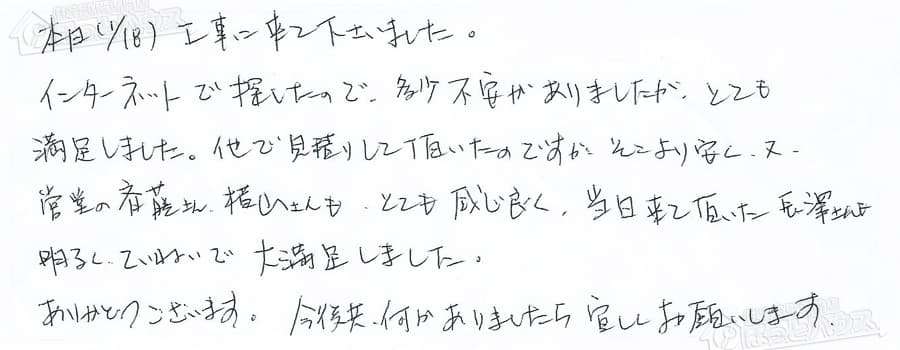 本日(1/18) 工事に来て下さいました。
インターネットで探したので、多少不安がありましたが、とても
満足しました。他で見積りして頂いたのですが、そこより安く、又、
営業の斉藤さん、横山さんも、とても感じ良く、当日来て頂いた長澤さんも
明るく、ていねいで大満足しました。
ありがとうございます。今後共、何かありましたら宜しくお願いします。